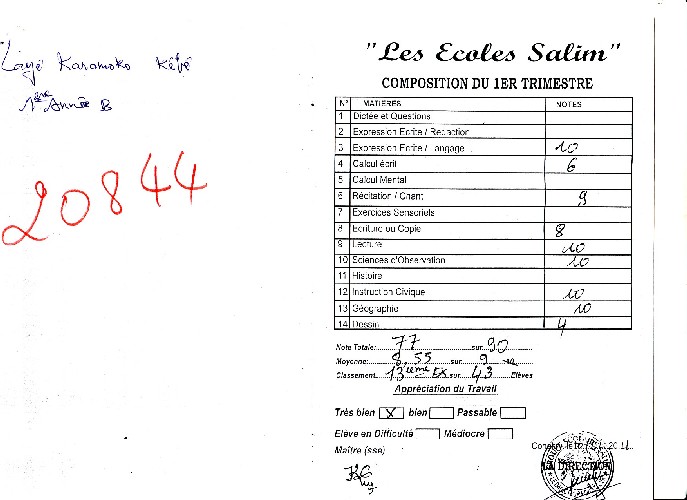 Layé Karamoko Kévé
1ère Année B
20844
"Les Ecoles Salim"
COMPOSITION DU 1ER TRIMESTRE
N° MATIERES NOTES
1 Dictée et Questions
2 Expression Ecrite / Rédaction
3 Expression Ecrite / Langage 10
4 Calcul écrit 6
5 Calcul Mental
6 Récitation / Chant 9
7 Exercices Sensoriels
8 Ecriture ou Copie 8
9 Lecture 10
10 Sciences d'Observation 10
11 Histoire
12 Instruction Civique 10
13 Géographie 10
14 Dessin 4
Note Totale: 77 sur 90
Moyenne: 8,55 sur 9
Classement 13ième EX sur 43 Elèves
Appréciation du Travail
Très bien X bien Passable
Elève en Difficulté Médiocre
Maître (sse)
Conakry, le
LA DIRECTION